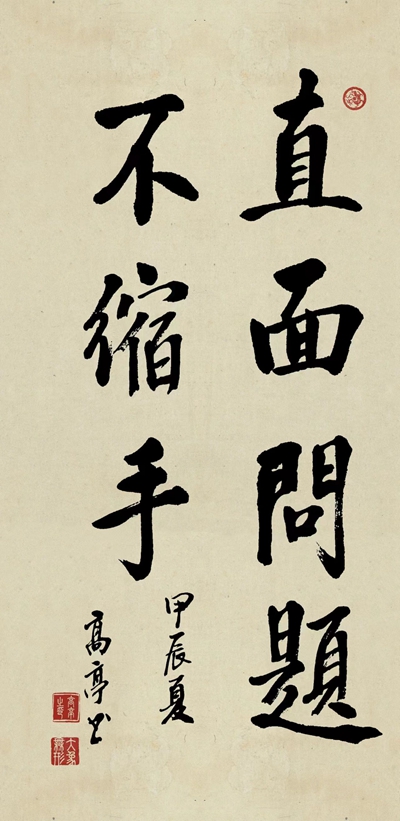 直面問題
不縮手
甲辰夏
高亭书